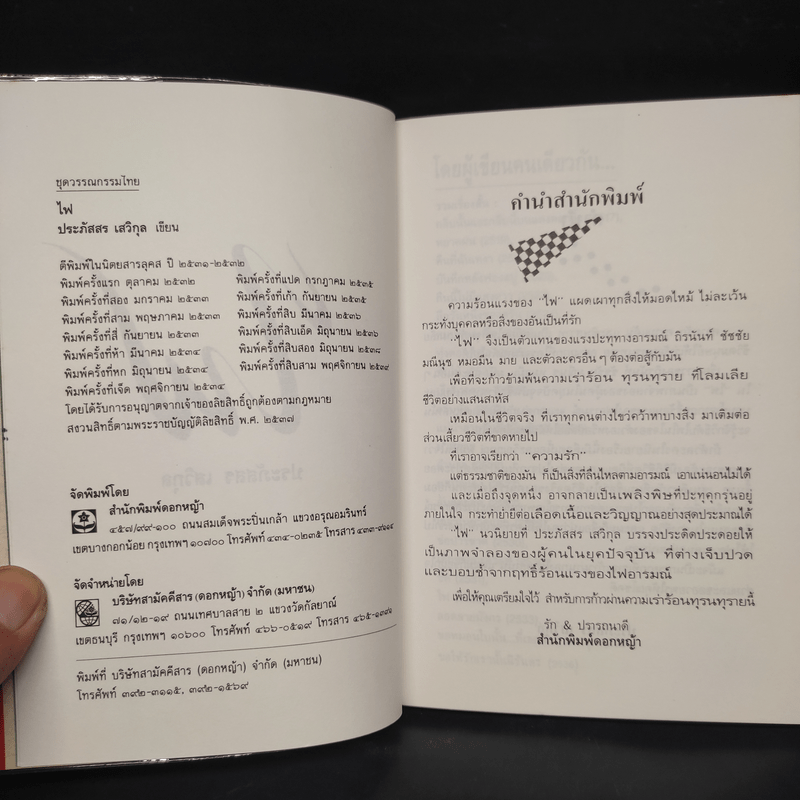 ชุดวรรณกรรมไทย
ไฟ
ประภัสสร เสวิกุล เขียน
ตีพิมพ์ในนิตยสารลุคส ปี ๒๕๓๑-๒๕๓๒
พิมพ์ครั้งแรก ตุลาคม ๒๕๓๒
พิมพ์ครั้งที่สอง มกราคม ๒๕๓๓
พิมพ์ครั้งที่สาม พฤษภาคม ๒๕๓๓
พิมพ์ครั้งที่สี่ กันยายน ๒๕๓๓
พิมพ์ครั้งที่ห้า มีนาคม ๒๕๓๔
พิมพ์ครั้งที่หก มิถุนายน ๒๕๓๔
พิมพ์ครั้งที่เจ็ด พฤศจิกายน ๒๕๓๔
พิมพ์ครั้งที่แปด กรกฎาคม ๒๕๓๕
พิมพ์ครั้งที่เก้า กันยายน ๒๕๓๕
พิมพ์ครั้งที่สิบ มีนาคม ๒๕๓๖
พิมพ์ครั้งที่สิบเอ็ด มิถุนายน ๒๕๓๖
พิมพ์ครั้งที่สิบสอง มิถุนายน ๒๕๓๘
พิมพ์ครั้งที่สิบสาม พฤศจิกายน
โดยได้รับการอนุญาตจากเจ้าของลิขสิทธิ์ถูกต้องตามกฎหมาย
สงวนสิทธิ์ตามพระราชบัญญัติลิขสิทธิ์ พ.ศ. ๒๕๓๗
จัดพิมพ์โดย
สำนักพิมพ์ดอกหญ้า
๔๕๗/๙๙-๑๐๐ ถนนสมเด็จพระปิ่นเกล้า แขวงอรุณอมรินทร์
เขตบางกอกน้อย กรุงเทพฯ ๑๐๗๐๐ โทรศัพท์ ๔๓๔-๐๒๓๕ โทรสาร
จัดจำหน่ายโดย
บริษัทสามัคคีสาร (ดอกหญ้า) จำกัด (มหาชน)
๗๑/๑๒-๑๙ ถนนเทศบาลสาย ๒ แขวงวัดกัลยาณ์
เขตธนบุรี กรุงเทพฯ ๑๐๖๐๐ โทรศัพท์ ๔๖๖-๐๕๑๙ โทรสาร
พิมพ์ที่ บริษัทสามัคคีสาร (ดอกหญ้า) จำกัด (มหาชน)
โทรศัพท์ ๓๙๒-๓๑๑๕, ๓๙๒-๑๕๖๙
คำนำสำนักพิมพ์
ความร้อนแรงของ "ไฟ" แผดเผาทุกสิ่งให้มอดไหม้ ไม่ละเว้น
กระทั่งบุคคลหรือสิ่งของอันเป็นที่รัก
"ไฟ" จึงเป็นตัวแทนของแรงปะทุทางอารมณ์ ถิรนันท์ ชัชชัย
มณีนุช หมอมีน มาย และตัวละครอื่นๆ ต้องต่อสู้กับมัน
เพื่อที่จะก้าวข้ามพ้นความเร่าร้อน ทุรนทุราย ที่โลมเลีย
ชีวิตอย่างแสนสาหัส
เหมือนในชีวิตจริง ที่เราทุกคนต่างไขว่คว้าหาบางสิ่ง มาเติมต่อ
ส่วนเสี้ยวชีวิตที่ขาดหายไป
ที่เราอาจเรียกว่า "ความรัก"
แต่ธรรมชาติของมัน ก็เป็นสิ่งที่ลื่นไหลตามอารมณ์ เอาแน่นอนไม่ได้
และเมื่อถึงจุดหนึ่ง อาจกลายเป็นเพลิงพิษที่ปะทุคุกรุ่นอยู่
ภายในใจ กระทำย่ำยีต่อเลือดเนื้อและวิญญาณอย่างสุดประมาณได้
"ไฟ" นวนิยายที่ ประภัสสร เสวิกุล บรรจงประดิดประดอยให้
เป็นภาพจำลองของผู้คนในยุคปัจจุบัน ที่ต่างเจ็บปวด
และบอบช้ำจากฤทธิ์ร้อนแรงของไฟอารมณ์
เพื่อให้คุณเตรียมใจไว้ สำหรับการก้าวผ่านความเร่าร้อนทุรนทุรายนี้
รัก & ปรารถนาดี
สำนักพิมพ์ดอกหญ้า